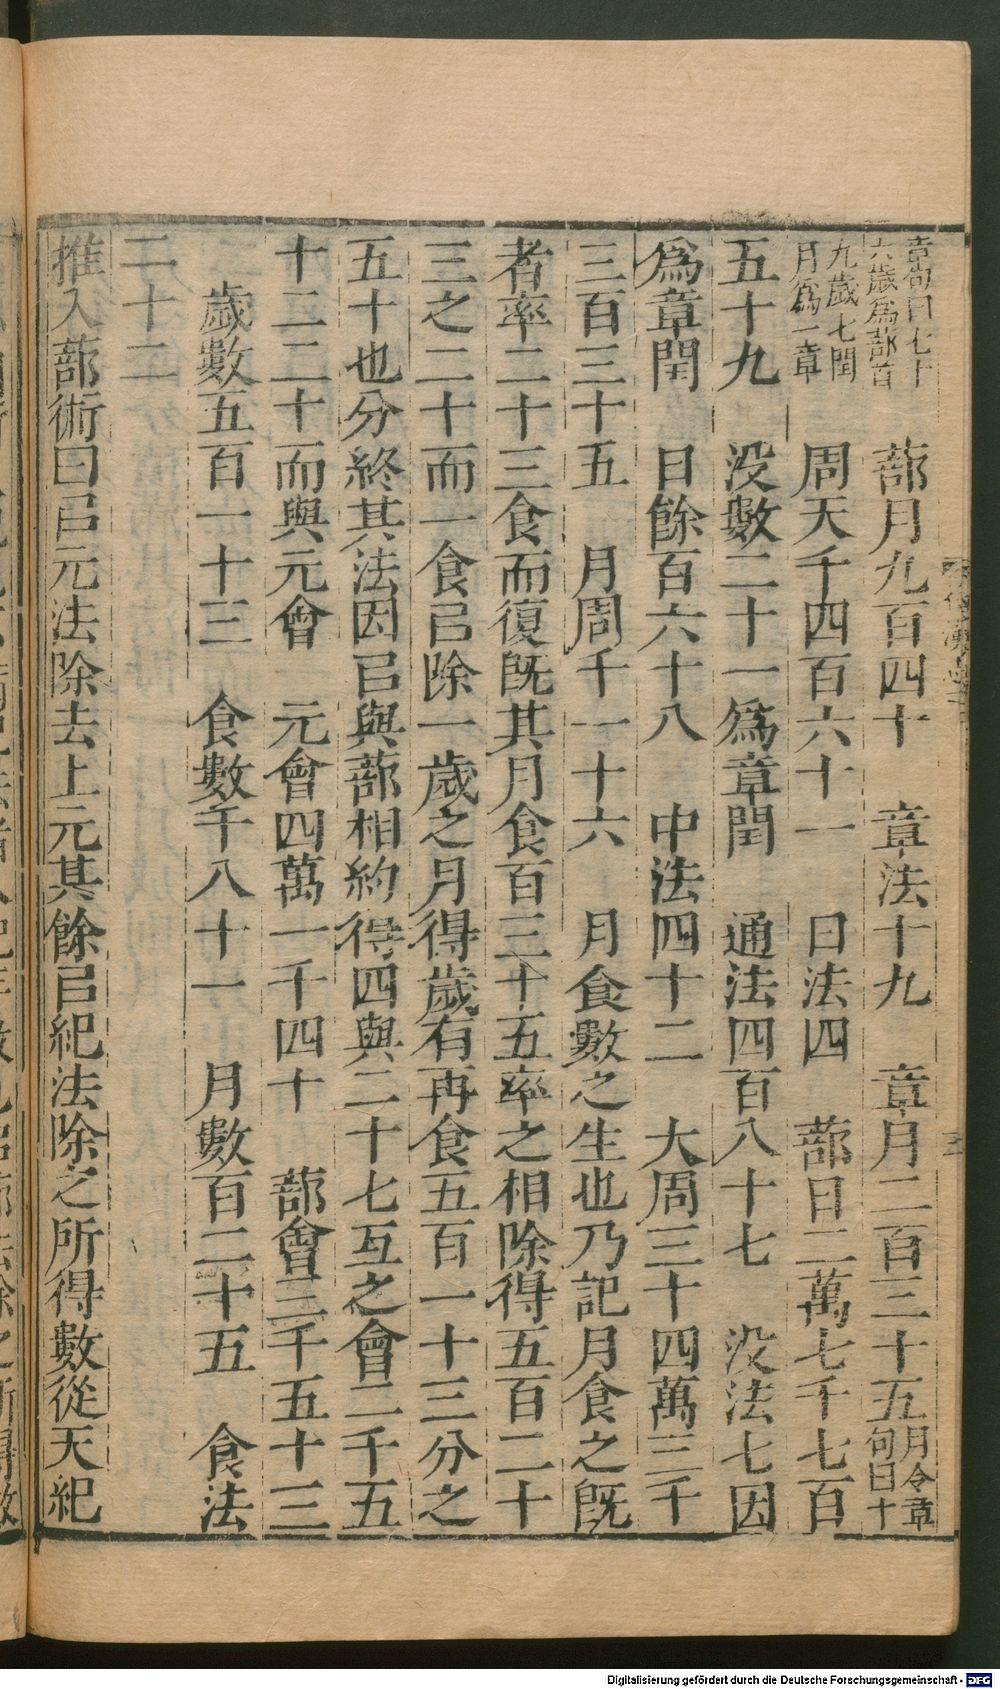 章句曰七十
六歲爲蔀首
蔀月九百四十　章法十九　章月二百三十五
月令章
句曰十
九歲七閏
月爲一章
周天千四百六十一　日法四　蔀日二萬七千七百
五十九　没數二十一爲章閏　通法四百八十七　没法七因
爲章閏　日餘百六十八　中法四十二　大周三十四萬三千
三百三十五　月周千一十六　月食數之生也乃記月食之既
者率二十三食而復既其月食百三十五率之相除得五百二十
三之二十而一食㠯除一歲之月得歲有再食五百一十三分之
五十也分終其法因㠯與蔀相約得四與二十七互之會二千五
十二二十而與元會　元會四萬一千四十　蔀會二千五十三
歲數五百一十三　食數千八十一　月數百二十五　食法
二十二
推入蔀術曰㠯元法除去上元其餘㠯紀法除之所得數從天紀
Digitalisierung gefördert durch die Deutsche Forschungsgemeinschaft - DFG